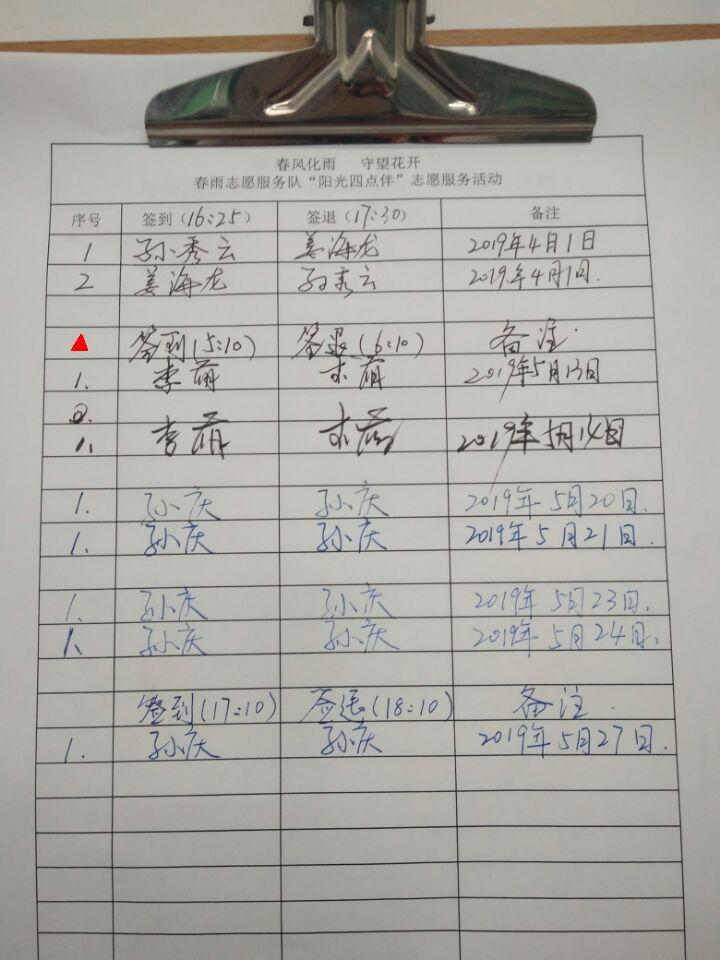 春风化雨 守望花开
春雨志愿服务队“阳光四点伴”志愿服务活动
序号 签到(16:25) 签退(17:30) 备注
1 孙秀云 姜海龙 2019年4月1日
2 姜海龙 孙秀云 2019.年4月1日.
签到(5:10) 签退(6:10) 备注.
1. 李萌 李萌 2019年5月13日
2.
1. 李萌 李萌 2019年5月14日
1. 孙庆 孙庆 2019年5月20日.
1. 孙庆 孙庆 2019年5月21日.
1. 孙庆 孙庆 2019年5月23日.
1. 孙庆 孙庆 2019年5月24日.
签到(17:10) 签退(18:10) 备注.
1. 孙庆 孙庆 2019年5月27日.